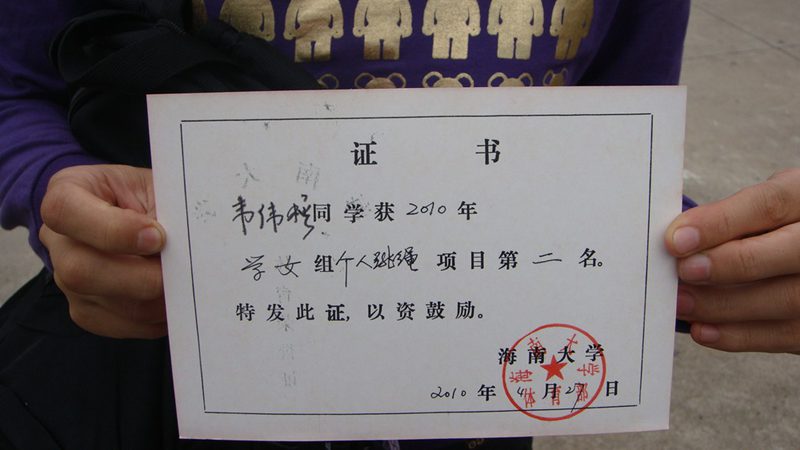 证书
韦伟 同学获2010年
学女组个人跳绳项目第二名。
特发此证,以资鼓励。
海南大学
2010年4月27日
海南大学
体育部